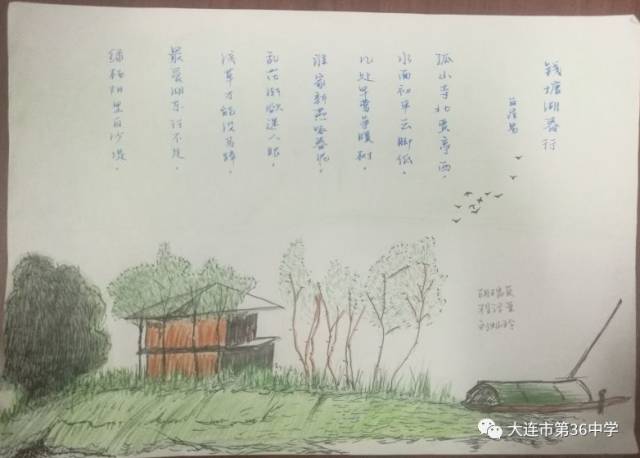 钱塘湖春行
白居易
孤山寺北贾亭西。
水面初平云脚低。
几处早莺争暖树,
谁家新燕啄春泥。
乱花渐欲迷人眼,
浅草才能没马蹄。
最爱湖东行不足,
绿杨阴里白沙堤。
大连市第36中学